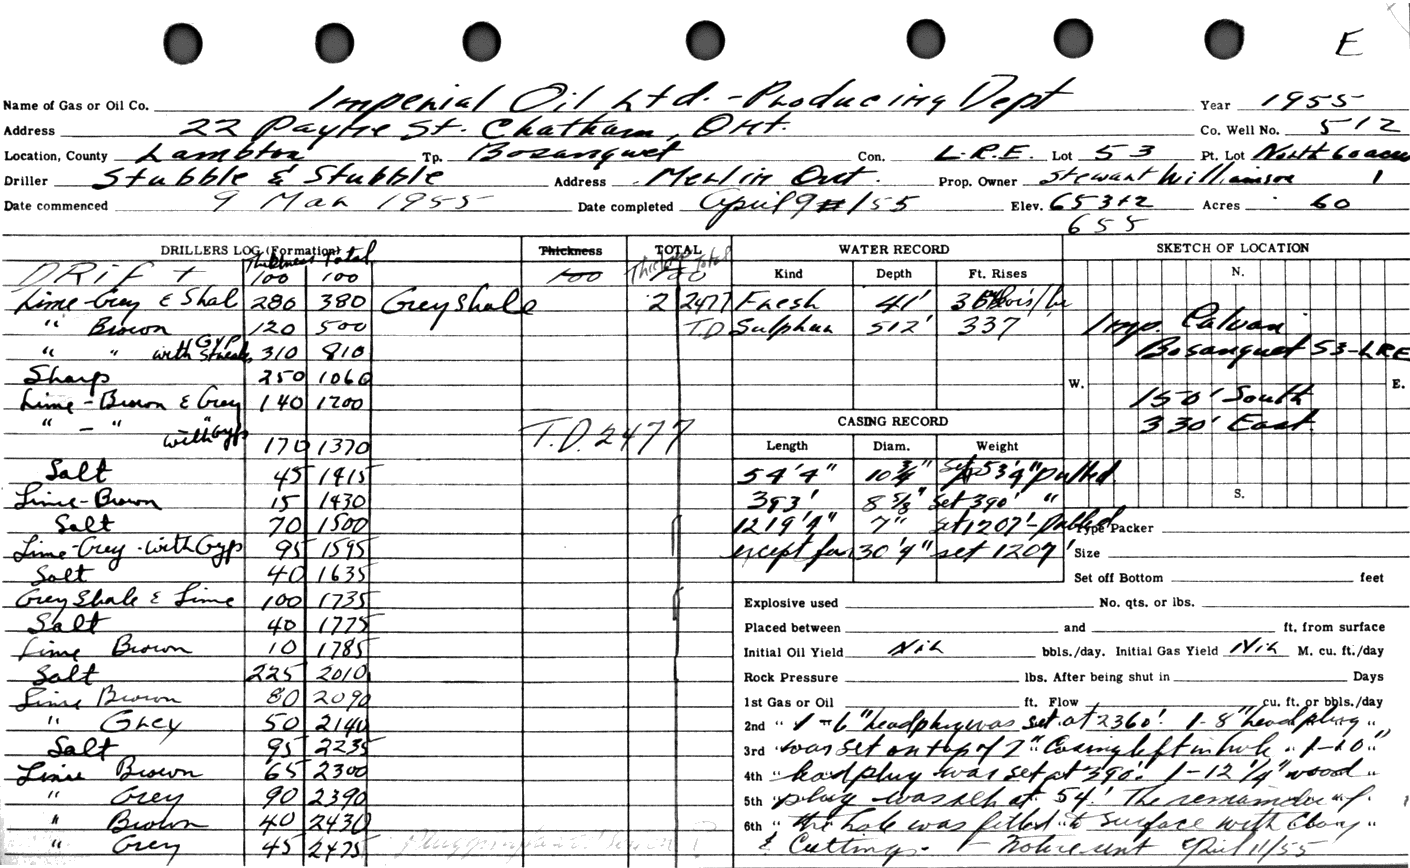 E
Name of Gas or Oil Co. Imperial Oil Ltd. - Producing Dept Year 1955
Address 22 Payne St. Chatham, Ont. Co. Well No. 512
Location, County Lambton Tp. Bosanquet Con. L.R.E. Lot 53 Pt. Lot North 60 acres
Driller Stubble & Stubble Address Merlin Ont. Prop. Owner Stewart Williamson 1
Date commenced 9 Mar 1955 Date completed April 9 /55 Elev. 653+2 Acres 60
655
DRILLERS LOG (Formation) Thickness Total Thickness TOTAL WATER RECORD SKETCH OF LOCATION
Drift 100 100 100 Thickness Total 100 Kind Depth Ft. Rises N.
Lime-Grey & Shal 280 380 Grey Shale 2 2477 Fresh 41' 36
" Brown 120 500 T.D Sulphur 512' 337 Imp. Calvan
" " with Gyp Streaks 310 810 Bosanquet 53-LRE
Sharp 250 1060 W. E.
Lime-Brown & Grey 140 1200 150' South
" - " with Gyp 170 1370 T.D. 2477 CASING RECORD 330' East
Length Diam. Weight
Salt 45 1415 54'4" 10 3/4" Set 53'4" pulled
Lime-Brown 15 1430 393' 8 5/8" set 390' " S.
Salt 70 1500 1219'4" 7" set 1207'- Pulled Type Packer
Lime-Grey-with Gyp 95 1595 except for 30'4" set 1207' Size
Salt 40 1635 Set off Bottom feet
Grey Shale & Lime 100 1735 Explosive used No. qts. or lbs.
Salt 40 1775 Placed between and ft. from surface
Lime Brown 10 1785 Initial Oil Yield Nil bbls./day. Initial Gas Yield Nil M. cu. ft./day
Salt 225 2010 Rock Pressure lbs. After being shut in Days
Lime Brown 80 2090 1st Gas or Oil ft. Flow cu. ft. or bbls./day
" Grey 50 2140 2nd " 1-6" headplug was set at 2360'. 1-8" headplug "
Salt 95 2235 3rd " was set on top of 7" Casing left in hole " 1-10"
Lime Brown 65 2300 4th " headplug was set at 390'. 1-12 1/4" wood "
" Grey 90 2390 5th " plug was set at 54'. The remainder of
" Brown 40 2430 6th " the hole was filled to surface with Clay "
" Grey 45 2475 & Cuttings. April 11/55